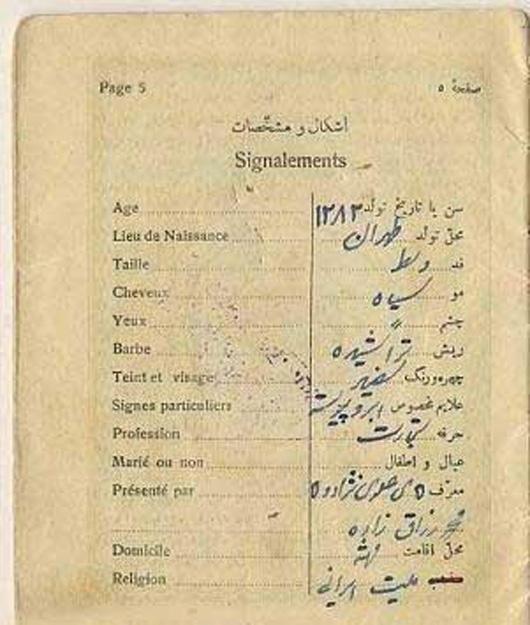 Page 5 صفحهٔ ٥
اشکال و مشخّصات
Signalements
Age سن یا تاریخ تولد ۱۲۸۳
Lieu de Naissance محلّ تولد طهران
Taille قد وسط
Cheveux مو سیاه
Yeux چشم 〃
Barbe ریش تراشیده
Teint et visage چهره‌ورنگ سفید
Signes particuliers علایم مخصوص ابرو پیوسته
Profession حرفه تجارت
Marié ou non عیال و اطفال
Présenté par معرّف
زاده
Domicile محلّ اقامت
Religion ملیت ایرانی